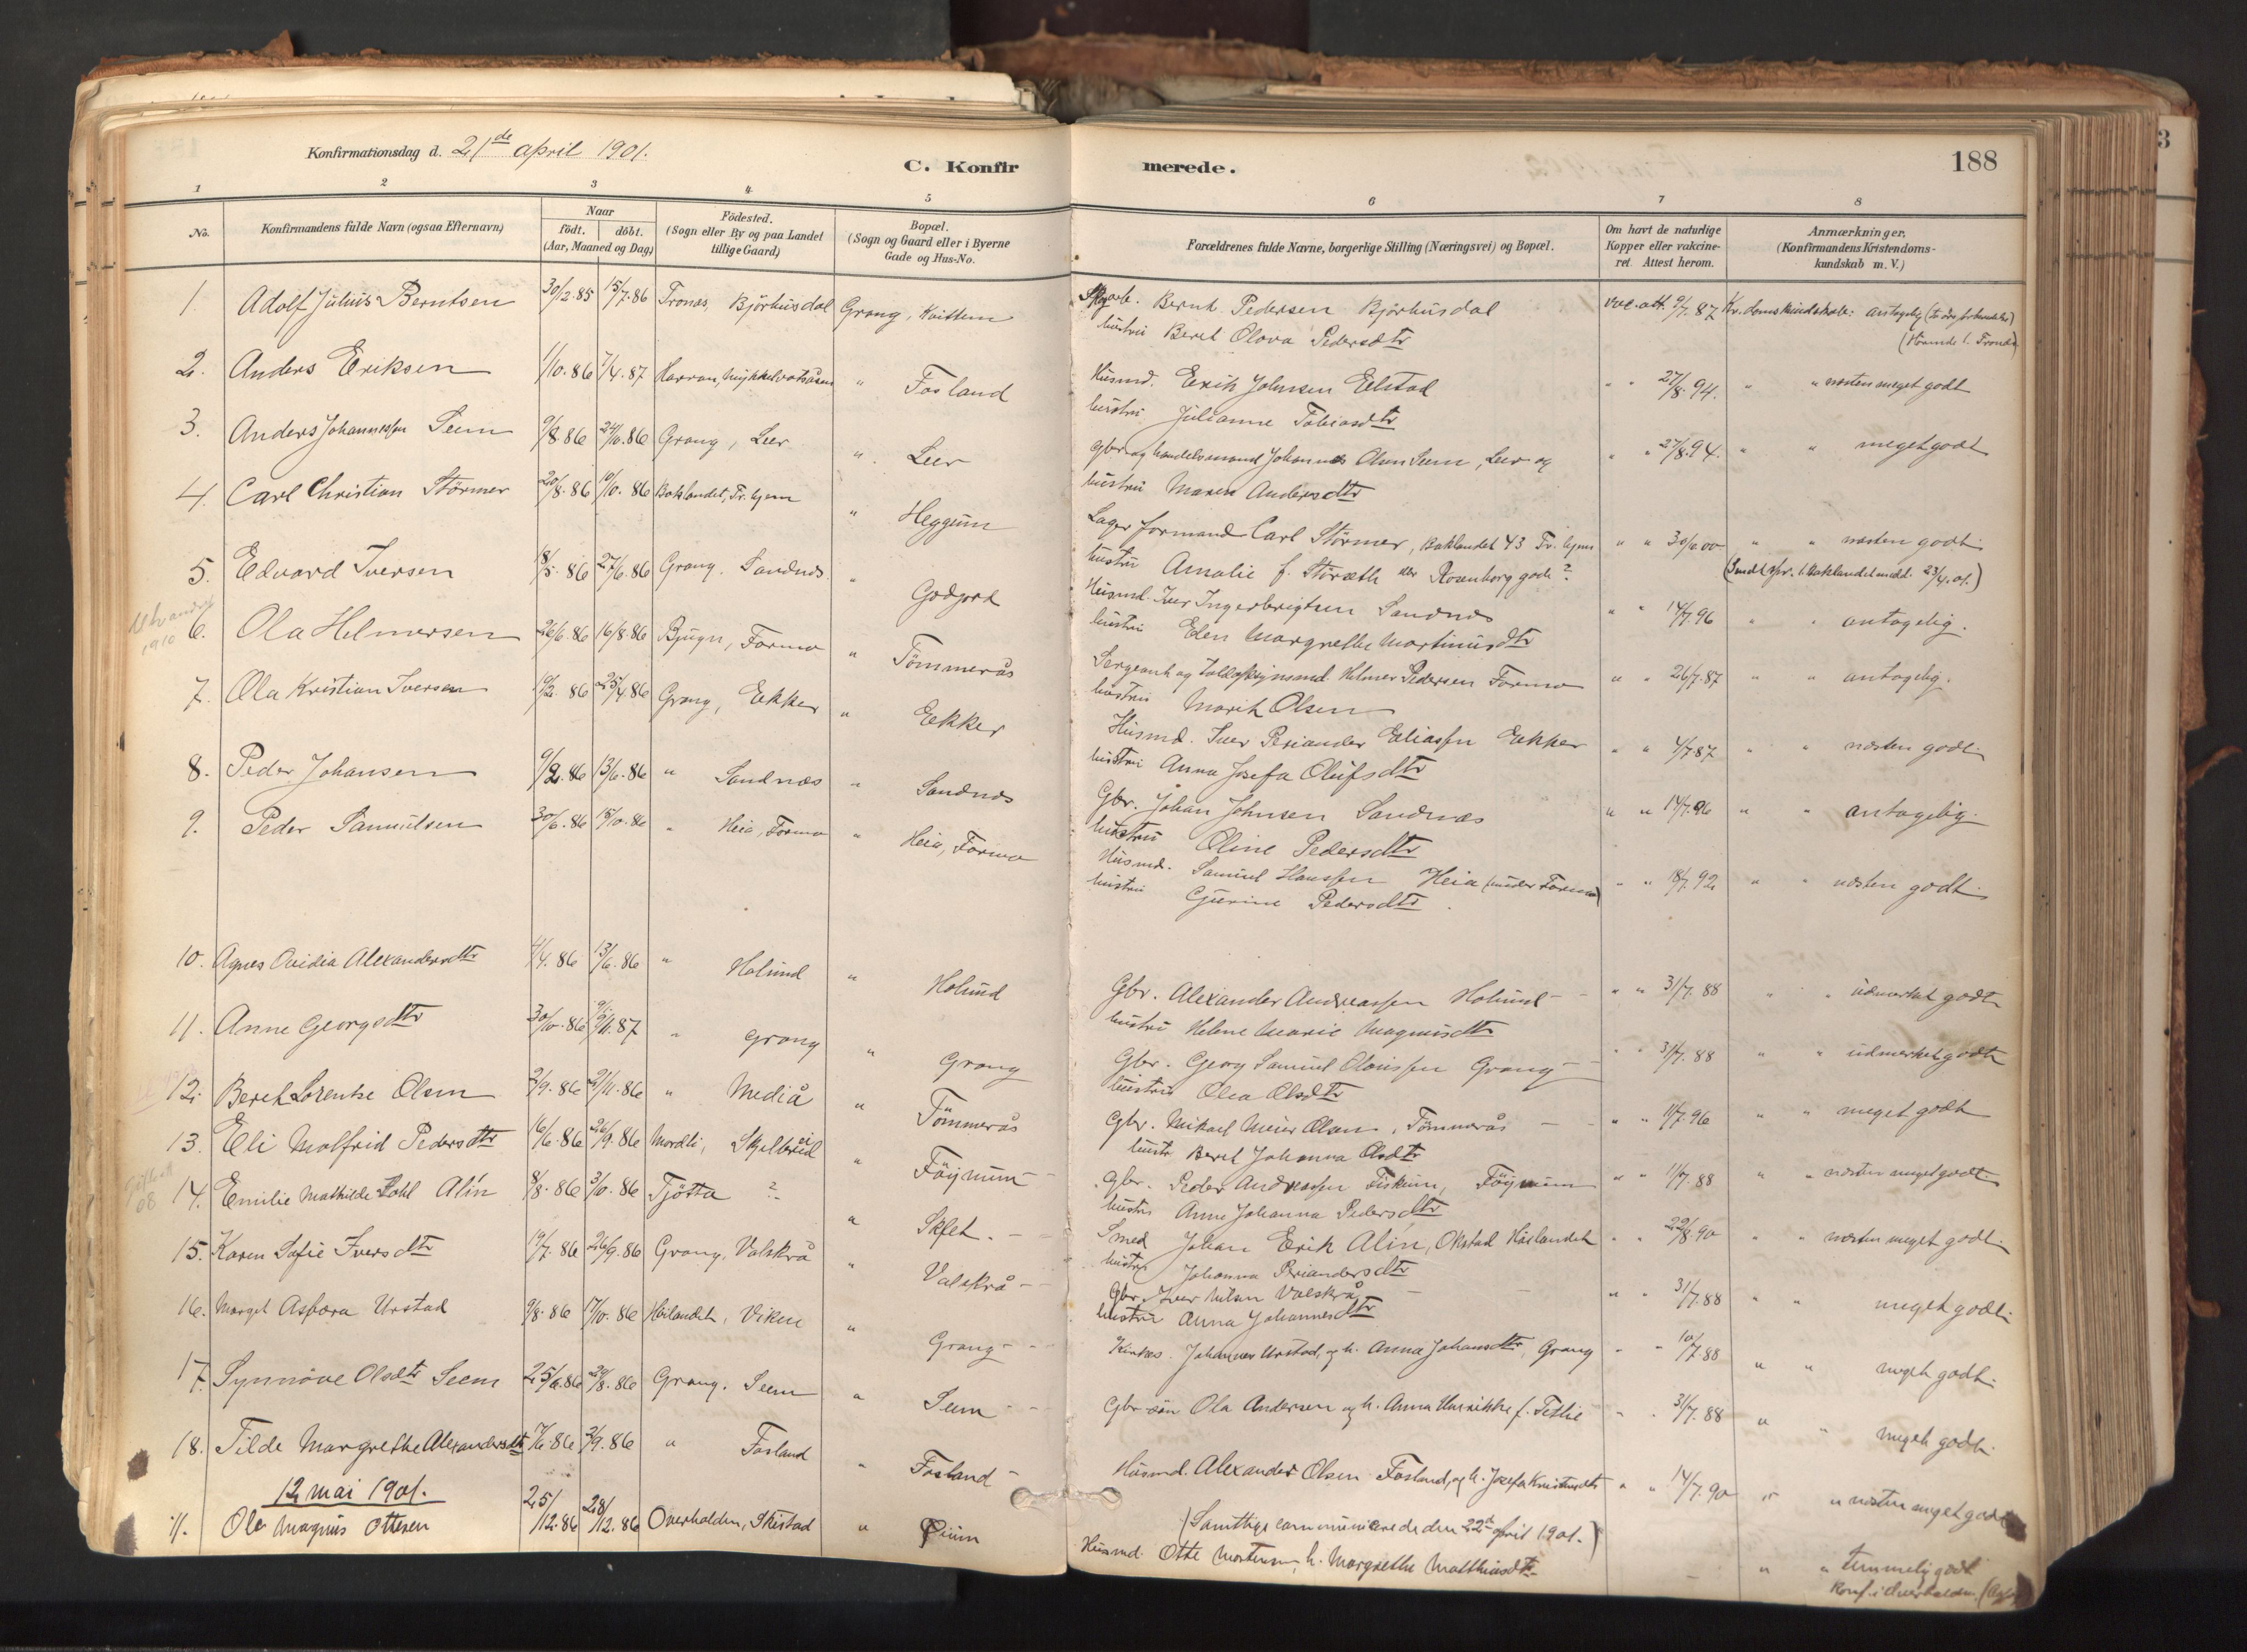 Konfirmationsdag d. 21de april 1901.
C. Konfirmerede.
188
1 2 3 4 5 6 7 8
No.
Konfirmandens fulde Navn (ogsaa Efternavn)
Naar
födt. döbt.
(Aar, Maaned og Dag)
Födested.
(Sogn eller By og paa Landet
tillige Gaard)
Bopæl.
(Sogn og Gaard eller i Byerne
Gade og Hus-No.
Forældrenes fulde Navne, borgerlige Stilling (Næringsvei) og Bopæl.
Om havt de naturlige
Kopper eller vakcine-
ret. Attest herom.
Anmærkninger.
(Konfirmandens Kristendoms-
kundskab m. V.)
1. Adolf Julius Berntsen 30/12.85 15/7.86 Tronæs, Bjørhusdal Grong,
Bernt Pedersen Bjørhusdal vac. att. 9/7.87 antagelig
hustru Beret Olova Pedersdtr
2. Anders Eriksen 1/10.86 7/4.87 Harran, " Fosland
Husmd. Erik Johnsen Elstad " " 27/8.94. " " næsten meget godt
hustru Julianne Tobiasdtr
3. Anders Johannessen Seem 9/8 86 24/10.86 Grong, Leer " Leer
Gbr. og handelsmand Johannes Olsen Seem, Leer og " " 27/8.94. " " meget godt
hustru Maren Andersdtr
4. Carl Christian Störmer 20/8.86 10/10.86 Baklandet, Tr.hjem " Heggum
Lagerformand Carl Störmer, Baklandet 43 Tr.hjem " " " " næsten godt
hustru Amalie f. Störseth Rosenborg gade ?
5. Edvard Iversen 18/5.86 27/6.86 Grong. Sandnæs " Godjord
Husmd. Iver Ingebrigtsen Sandnæs " " 14/7.96 " " antagelig.
hustru Elen Margrethe Martinusdtr
Utvandret
1910
6. Ola Helmersen 26/6.86 16/8.86 Bjugn, Formo " Tömmerås
Sergeant og Helmer Pedersen Formo " " 26/7.87 " " antagelig.
hustru Marit Olsen
7. Ola Kristian Iversen 19/2 86 25/4.86 Grong, Ekker " Ekker
Husmd. Iver Periander Eliassen Ekker " " 4/7.87 " " næsten godt
hustru Anna Josefa Olufsdtr
8. Peder Johansen 9/2.86 13/6.86 " Sandnæs " Sandnæs
Gbr. Johan Johnsen Sandnæs " " 14/7.96 " " antagelig.
hustru Oline Pedersdtr
9. Peder Samuelsen 30/6.86 15/10.86 " Heia, Formo " Heia, Formo
Husmd. Samuel Hanssen Heia (under Formo) " " 18/7.92 " " næsten godt
hustru Gurine Pedersdtr
10. Agnes Ovidia Alexandersdtr 4/4.86 13/6.86 " Holund " Holund
Gbr. Alexander Andreassen Holund " " 31/7.88 " " udmerket godt
hustru Helene Marie Magnusdtr
11. Anne Georgsdtr 30/10.86 " Grong " Grong
Gbr. Georg Samuel Olaussen Grong " " 31/7.88 " " udmerket godt
hustru Olea Olsdtr
12. Beret Lorentse Olsen 2/9.86 21/11.86 " Mediå " Tömmerås
Gbr. Mikael Meier Olsen, Tömmerås " " 11/7.96 " " meget godt
hustr Beret Johanna Olsdtr
13. Eli Malfrid Pedersdtr 16/6.86 26/9.86 Mordli, " Föynum
Gbr. Peder Andreassen Fiskum, Föynum " " 11/7.88 " " næsten meget godt
hustru Anne Johanna Pedersdtr
14. Emilie Mathilde Alin 8/8.86 3/10.86 Tjötta ? " Sklet.
Smed Johan Erik Alin, Okstad Höilandet " " 22/8.90 " " næsten meget godt
hustru Johanna Periandersdtr
15. Karen Sofie Iversdtr 19/7.86 26/9.86 Grong, Valskrå " Valskrå
Gbr. Iver Nilsen Valskrå " " 31/7.88 " " meget godt
hustru Anna Johannesdtr
16. Margit Asbora Urstad 9/8.86 17/10.86 Höilandet, Viken " Grong
Johannes Urstad, og h. Anna Johansdtr, Grong " " 10/7.88 " " meget godt
17. Synnöve Olsdtr Seem 25/6.86 29/8.86 Grong. Seem " Seem
Gbr. sön Ola Andersen og h. Anna Henrikke f. Tetlie " " 31/7.88 " " meget godt
18. Tilde Margrethe Alexandersdtr 17/6.86 3/9.86 " Fosland " Fosland
Husmd. Alexander Olsen Fosland, og h. Josefa " " 14/7.90 " " næsten meget godt
12 mai 1901.
(Samtlige communicerede den 22de april 1901.)
1/. Ole Magnus Ottesen 25/12.86 28/12.86 Overhalden, Skistad "
Husmd. Otte h. Margrethe Matthiasdtr " " temmelig godt
Konf. i Overhalden.